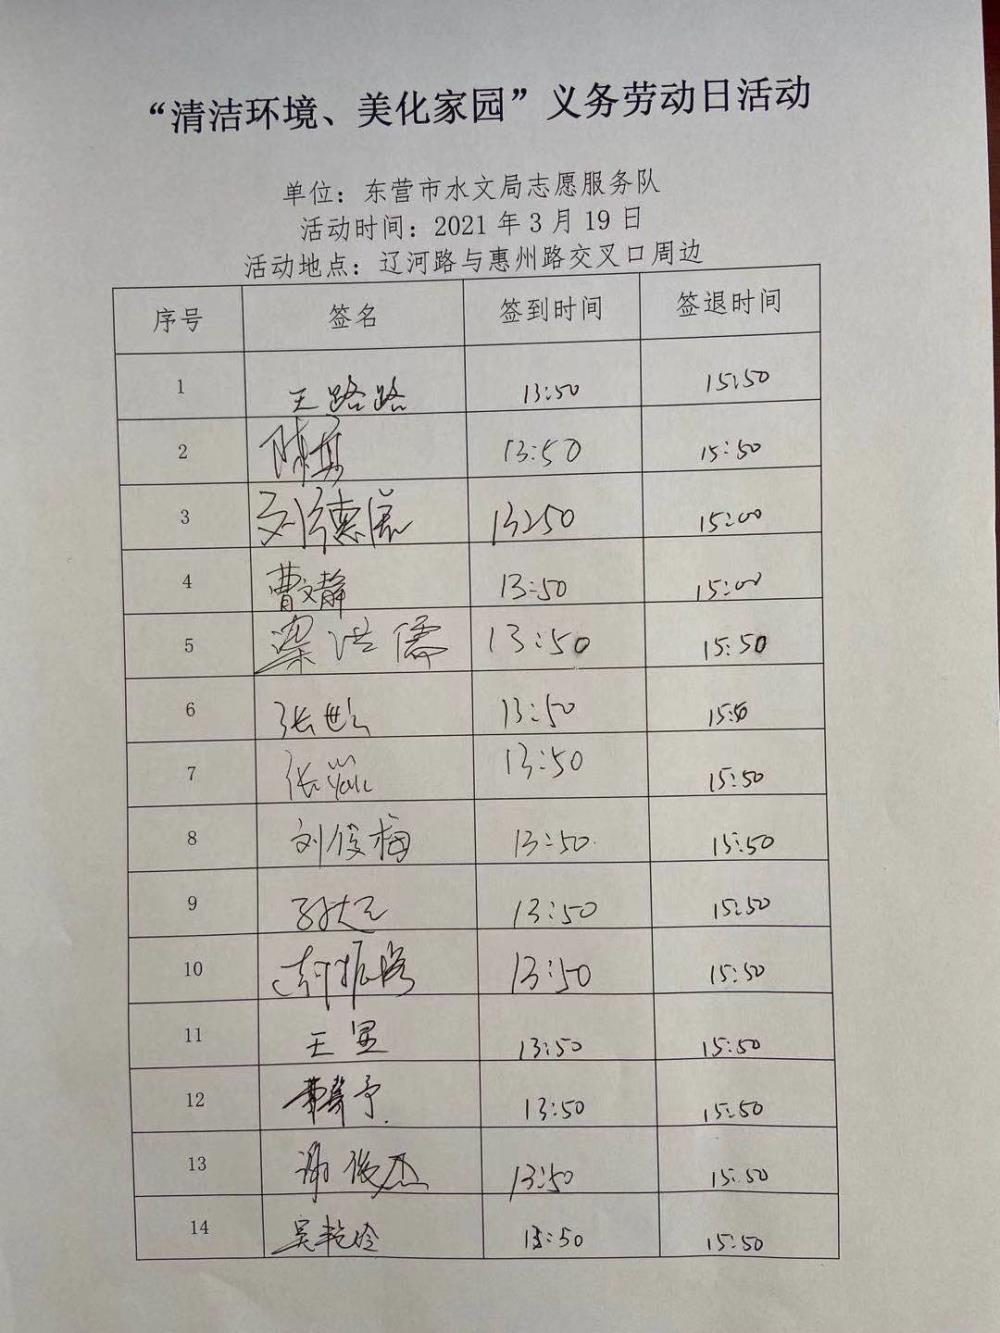 “清洁环境、美化家园”义务劳动日活动
单位：东营市水文局志愿服务队
活动时间：2021 年 3 月 19 日
活动地点：辽河路与惠州路交叉口周边
序号 签名 签到时间 签退时间
1 王路路 13:50 15:50
2 陈 13:50 15:50
3 刘德 13:50 15:00
4 曹文静 13:50 15:00
5 梁洪儒 13:50 15:50
6 张世 13:50 15:50
7 张 13:50 15:50
8 刘俊梅 13:50 15:50
9 13:50 15:50
10 振 13:50 15:50
11 王 13:50 15:50
12 予 13:50 15:50
13 谢俊杰 13:50 15:50
14 吴艳玲 13:50 15:50